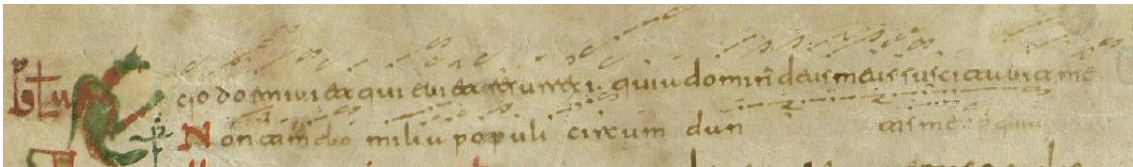 Ego dormivi et qui evi et surrexi. quia domin̅ deus meus suscitavit me
Non timebo milia populi circum dan tis me quia